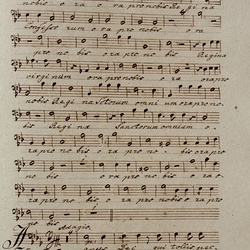 nobis o ra o ra pro nobis Regi na
Confess orum o ra pro nobis o ra
pro no bis o ra pro no bis Regina
virginum o ra pro nobis o ra ora pro
nobis Regi na Sanctorum omni um ora pro no-
bis Regi na Sanctorum omnium o-
ra pro no bis o ra pro no - bis o-
ra pro no bis o ra pro nobis o ra pro
no bis
Adagio.
Agnus Dei qui tollis pec